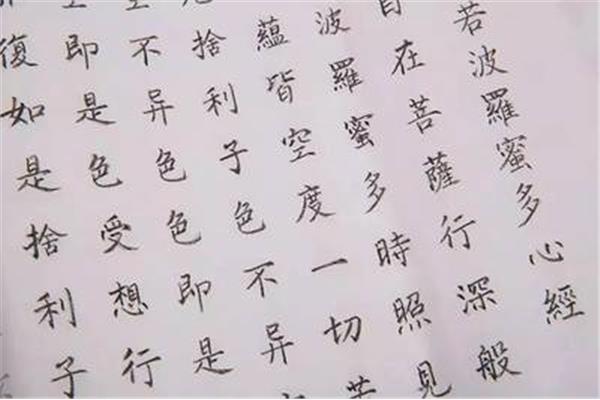 若波羅蜜多心經
自在菩薩行深般
波羅蜜多時照見
蘊皆空度一切苦
厄捨利子色不异
空不异色色即是
空即是色受想行
復如是捨利子